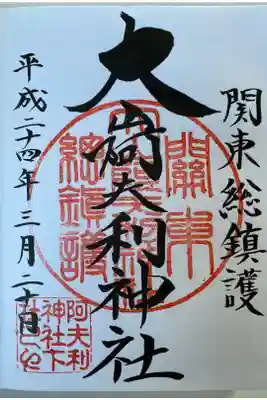 関東総鎮護
大山阿夫利神社
平成二十四年三月二十日
關東
總鎮護
阿夫利
神社下